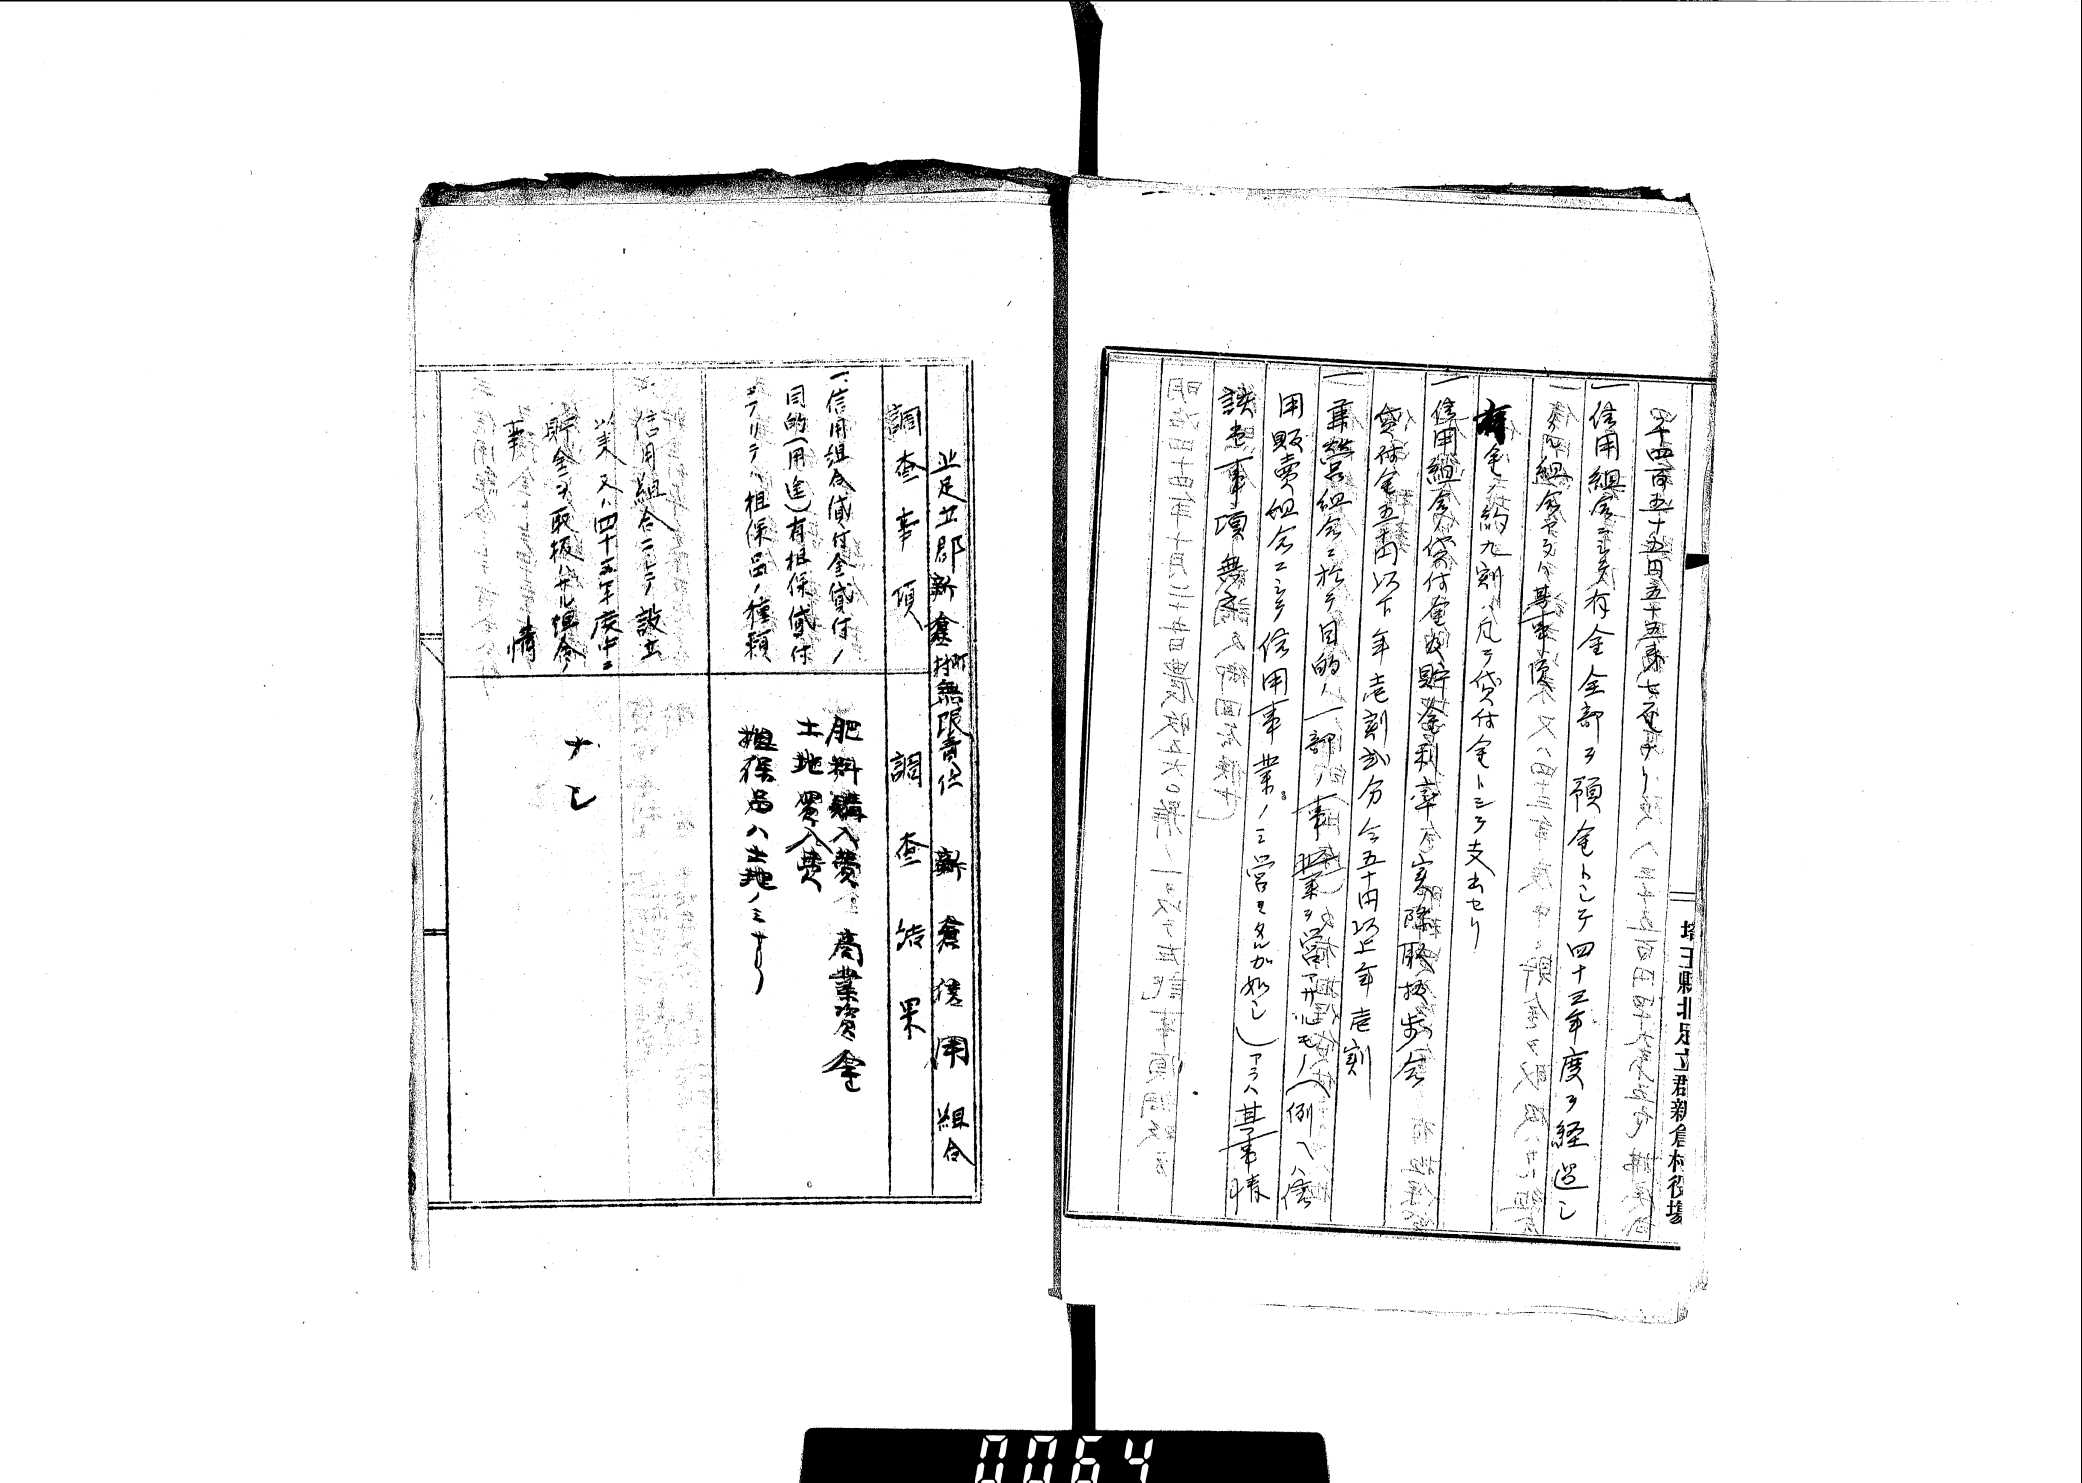 埼玉縣北足立郡新倉村役場
千四百五十五円五十五銭七厘ナリ
一信用組合ニシテ有金全部ヲ預金トシテ四十三年度ヲ経過シ
タル組合アラバ其事情
有金ノ約九割ハ凡テ貸付金トシテ支出セリ
一信用組合貸付金及貯金利率
貸付金五十円以下年壱割弐分仝五十円以上年壱割
一兼営組合ニ於テ目的ノ一部ノ事業ヲ営マザルモノ(例ヘハ信
用販賣組合ニシテ信用事業ノミ営ミタルカ如シ)アラハ其事情
該当事項無之
北足立郡新倉村
町
無限責任 新倉信用組合
調査事項 調査結果
一、信用組合貸付金貸付ノ
目的(用途)有担保貸付
ニアリテハ担保品ノ種類
肥料購入費 商業資金
土地買入費
担保品ハ土地ノミナリ
信用組合ニシテ設立
以来又ハ四十三年度中ニ
貯金ヲ取扱ハサル組合ノ
事情
ナシ
0064